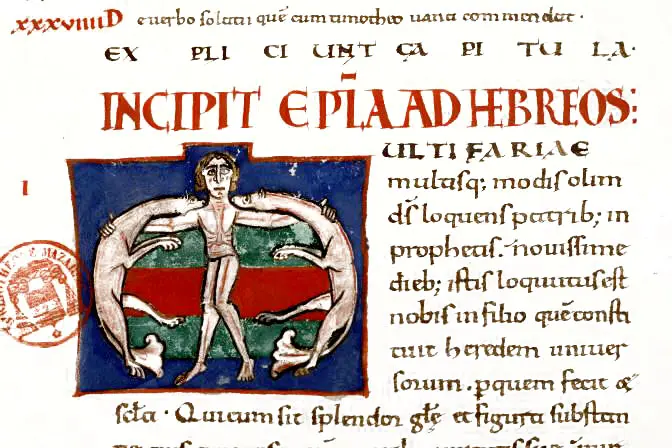 xxxviiii D e verbo solatii quē cum timotheo vana commendat.
EX PLI CI UNT CA PI TU LA.
INCIPIT EPLA AD HEBREOS:
I
ULTIFARIAE
multisq; modis olim
ds̄ loquens patrib; in
prophetis. novissime
dieb; istis loquutus est
nobis in filio quē consti
tuit heredem univer
sorum. p quem fecit &
scła. Qui cum sit splendor głe et figura substan